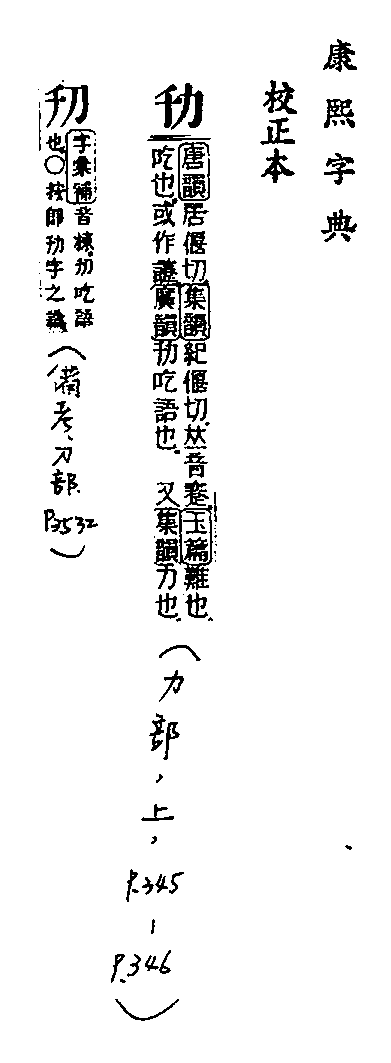 康熙字典
校正本
唐韻居偃切集韻紀偃切𠀤音蹇玉篇難也
吃也或作廣韻吃語也 又集韻力也
(力部,上,P.345-P.346)
字彙補音吃語
也○按即字之譌
(備考、刀部、P.3532)